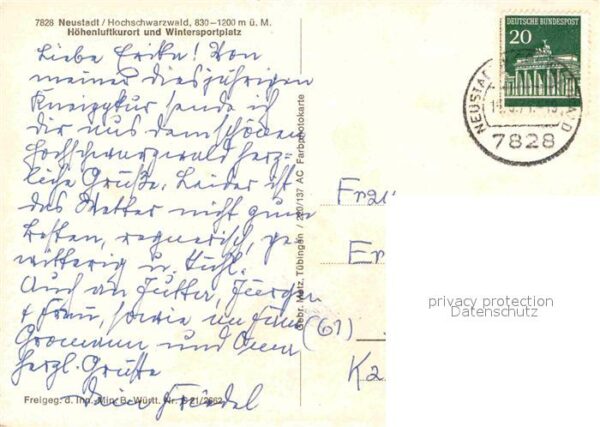 7828 Neustadt / Hochschwarzwald, 830–1200 m ü. M.
Höhenluftkurort und Wintersportplatz
Liebe Erika! Von
meiner diesjährigen
Kneippkur sende ich
dir aus dem schönen
Hochschwarzwald herz-
liche Grüße. Leider ist
das Wetter nicht zum
besten, regnerisch, ge-
witterig u. kühl.
Auch an Jutta, Jürgen
+ Frau, sowie
und Oma
herzl. Grüße
Dein Friedel
Freigeg. d. Inn. Min. B.-Württ. Nr.
Gebr. Metz, Tübingen / 220/137 AC Farbphotokarte
DEUTSCHE BUNDESPOST
20
NEUSTADT
7828
Frau
Er
(61)
Ka
privacy protection
Datenschutz